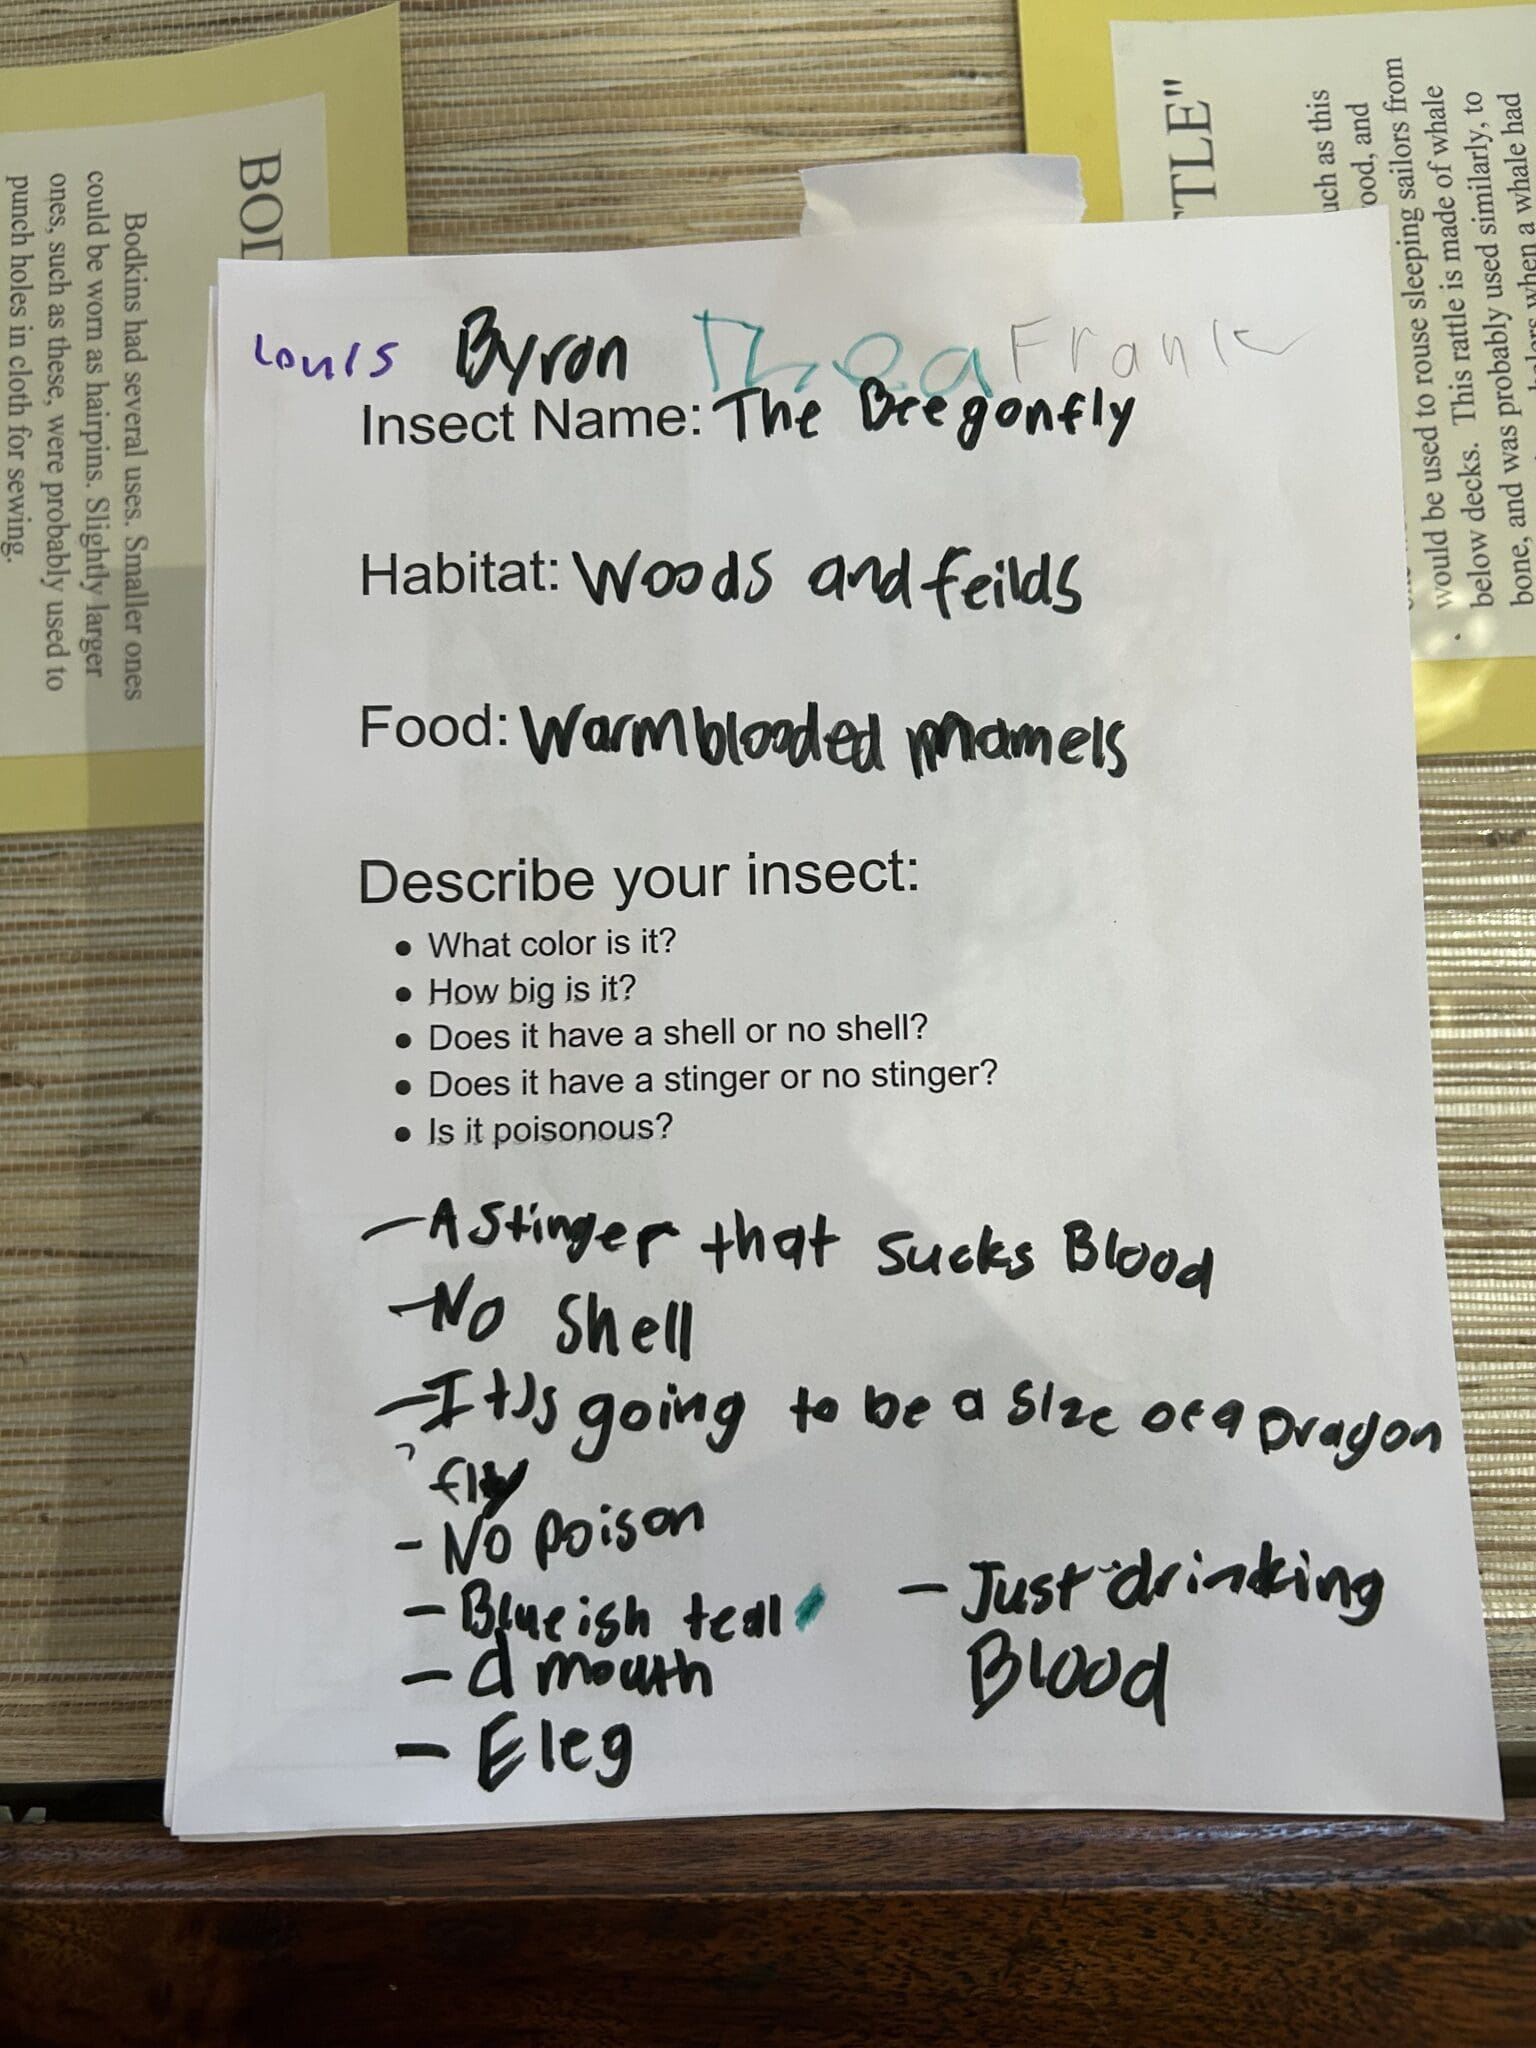 BOD
Bodkins had several uses. Smaller ones
could be worn as hairpins. Slightly larger
ones, such as these, were probably used to
punch holes in cloth for sewing.
TLE"
uch as this
ood, and
would be used to rouse sleeping sailors from
below decks. This rattle is made of whale
bone, and was probably used similarly, to
when a whale had
Louis Byron Thea Frank
Insect Name: The Beegonfly
Habitat: Woods and feilds
Food: Warmblooded mamels
Describe your insect:
• What color is it?
• How big is it?
• Does it have a shell or no shell?
• Does it have a stinger or no stinger?
• Is it poisonous?
- A stinger that sucks Blood
- No shell
- It is going to be a size of a Dragon
fly
- No poison
- Blueish teal
- Just drinking
- a mouth
Blood
- E leg